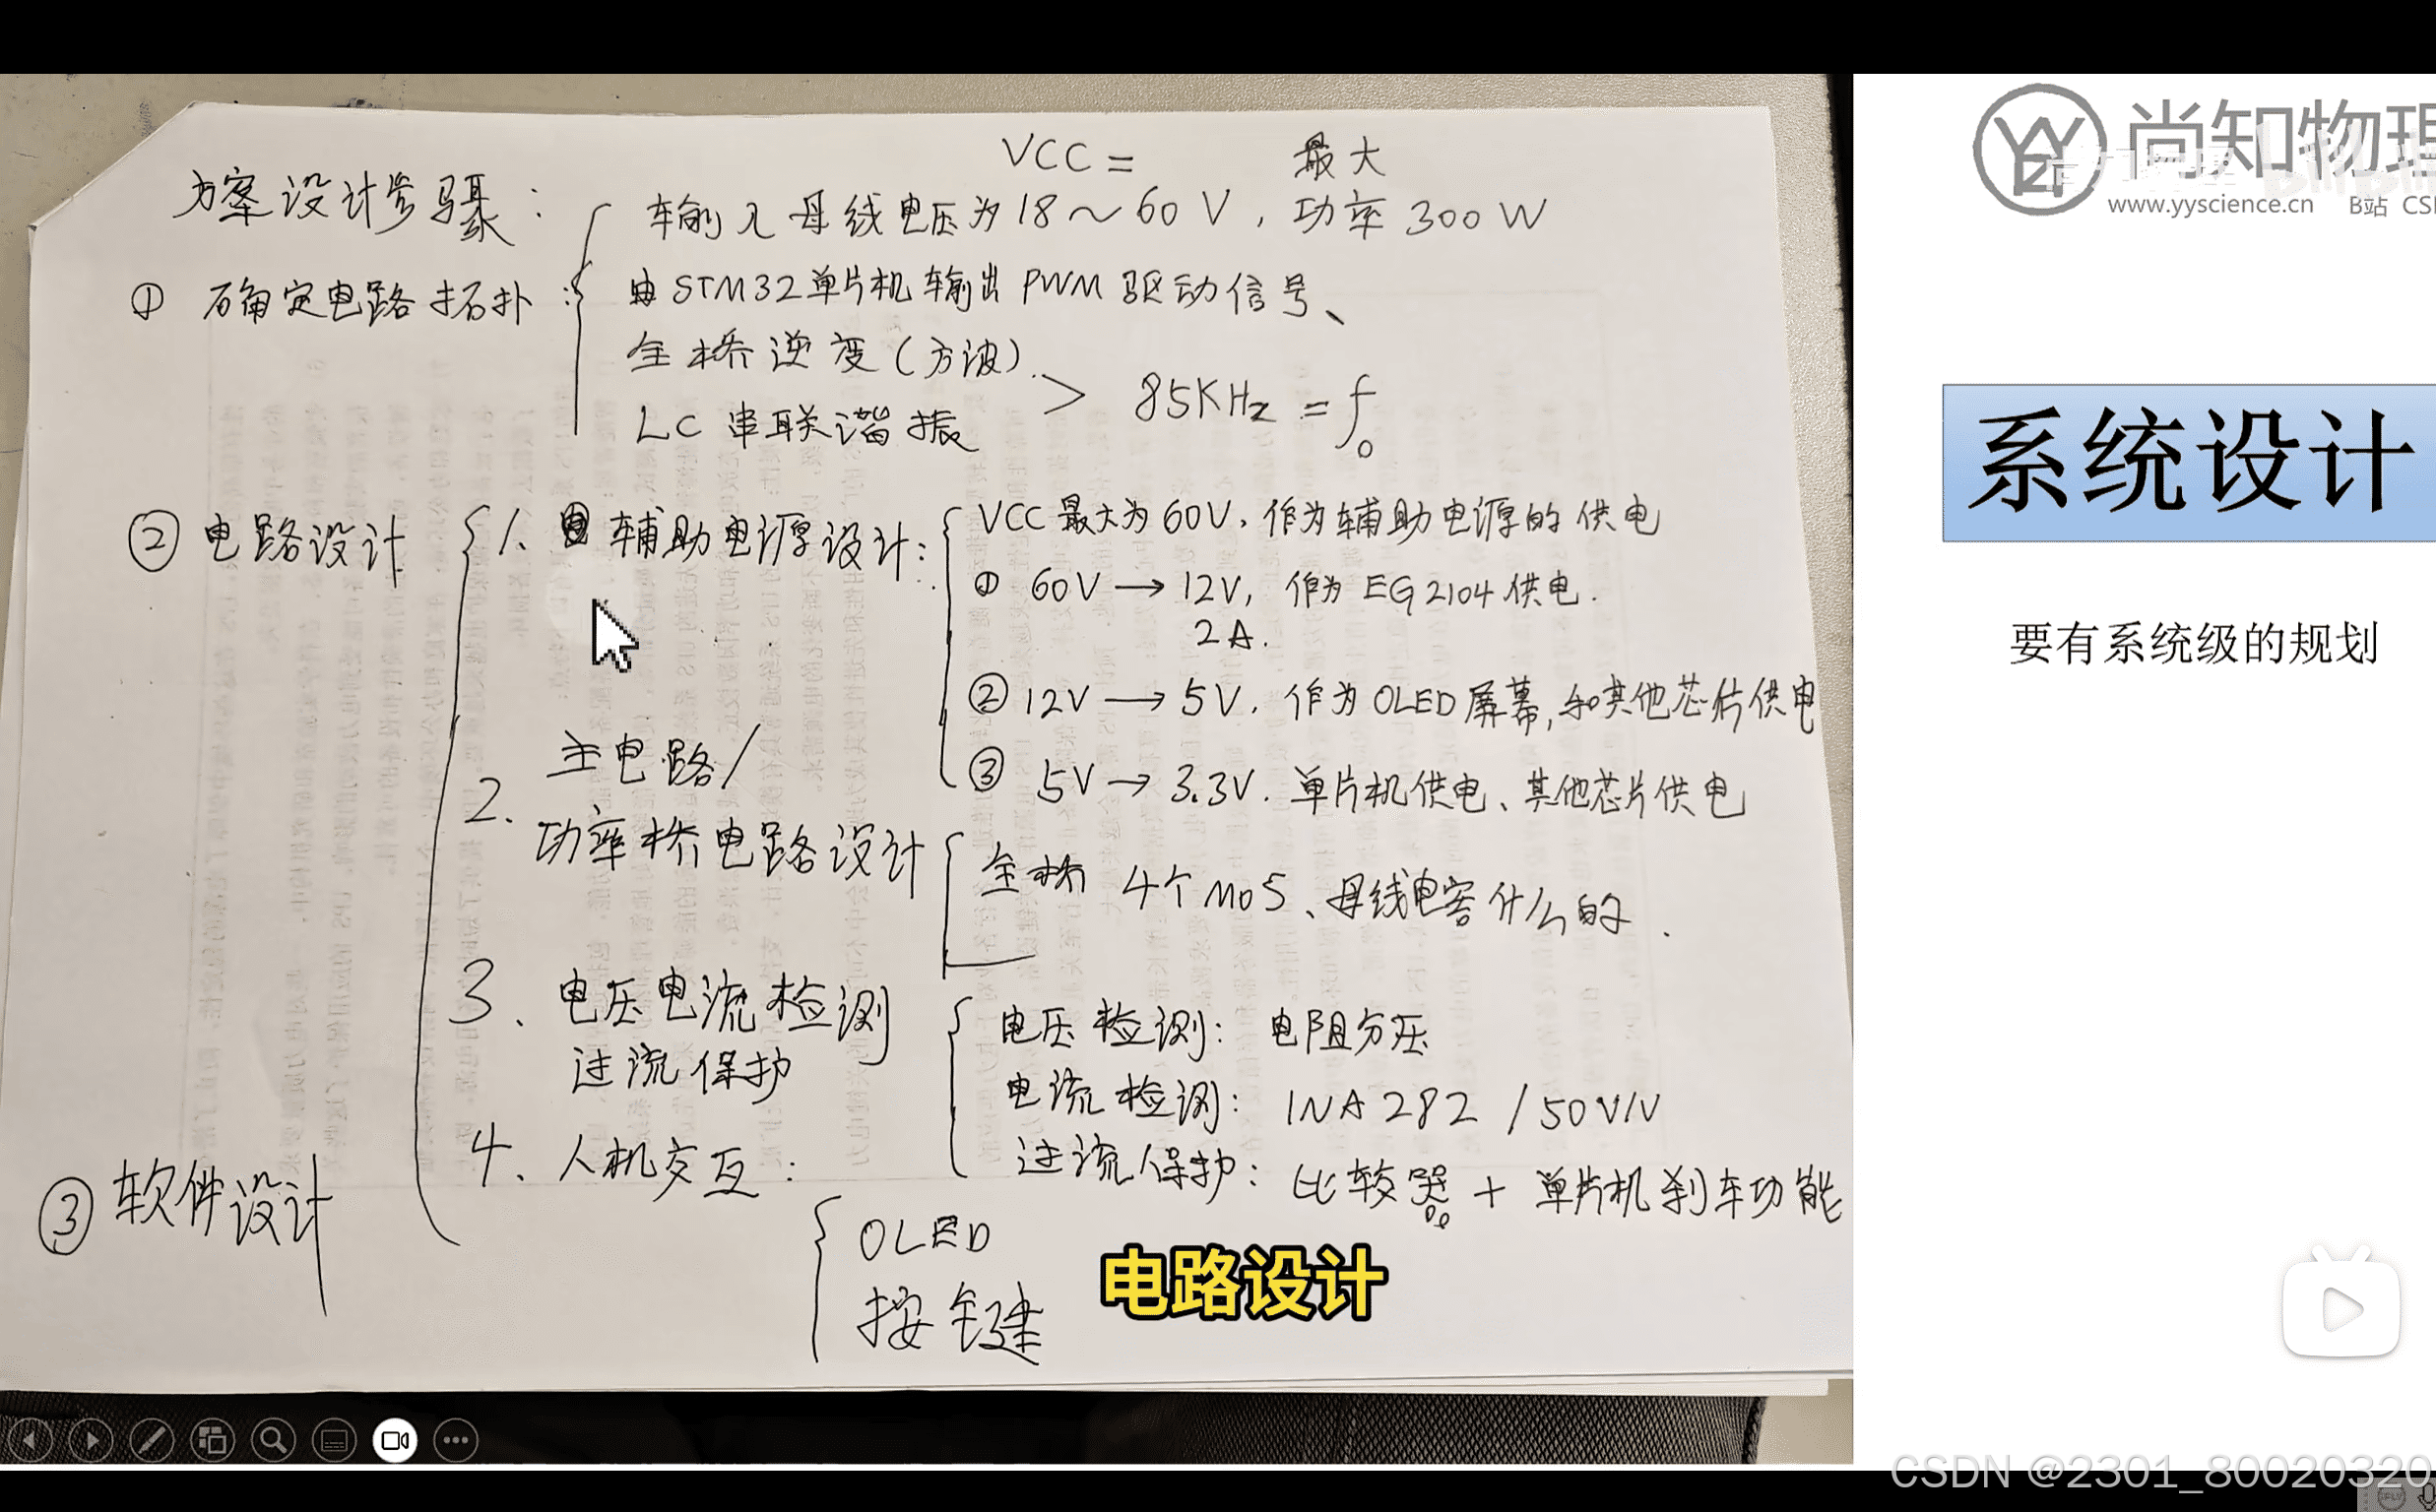 VCC = 最大
方案设计步骤：
输入母线电压为18～60V，功率300W
① 确定电路拓扑：
由STM32单片机输出PWM驱动信号、
全桥逆变(方波).
> 85KHz = f0
LC串联谐振
② 电路设计
1. 辅助电源设计：
VCC最大为60V，作为辅助电源的供电
① 60V → 12V, 作为EG2104供电.
2A.
② 12V → 5V, 作为OLED屏幕,和其他芯片供电
③ 5V → 3.3V. 单片机供电、其他芯片供电
2. 主电路/
功率桥电路设计
全桥 4个MOS、母线电容什么的.
3. 电压电流检测
过流保护
电压检测: 电阻分压
电流检测: INA282 /50V/V
过流保护: 比较器 + 单片机刹车功能
4. 人机交互:
OLED
按键
③ 软件设计
电路设计
尚知物理
www.yyscience.cn B站 CS
系统设计
要有系统级的规划
CSDN @2301_80020320